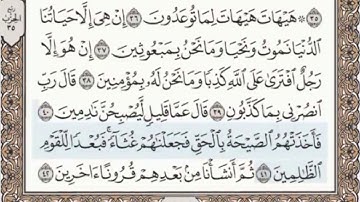 ٣٥ ۞ هَيْهَاتَ هَيْهَاتَ لِمَا تُوعَدُونَ ٣٦ إِنْ هِيَ إِلَّا حَيَاتُنَا
الدُّنْيَا نَمُوتُ وَنَحْيَا وَمَا نَحْنُ بِمَبْعُوثِينَ ٣٧ إِنْ هُوَ إِلَّا
رَجُلٌ افْتَرَىٰ عَلَى اللَّهِ كَذِبًا وَمَا نَحْنُ لَهُ بِمُؤْمِنِينَ ٣٨ قَالَ رَبِّ
انصُرْنِي بِمَا كَذَّبُونِ ٣٩ قَالَ عَمَّا قَلِيلٍ لَّيُصْبِحُنَّ نَادِمِينَ ٤٠
فَأَخَذَتْهُمُ الصَّيْحَةُ بِالْحَقِّ فَجَعَلْنَاهُمْ غُثَاءً ۚ فَبُعْدًا لِّلْقَوْمِ
الظَّالِمِينَ ٤١ ثُمَّ أَنشَأْنَا مِن بَعْدِهِمْ قُرُونًا آخَرِينَ ٤٢
ربع
الحزب
٣٥